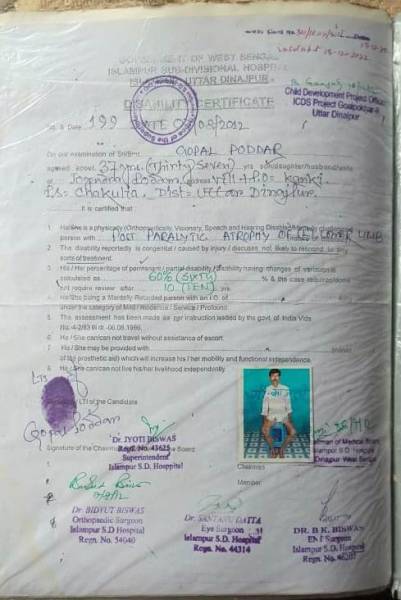 GOVERNMENT OF WEST BENGAL
ISLAMPUR SUB-DIVISIONAL HOSPITAL
ISLAMPUR, UTTAR DINAJPUR
Child Development Project Officer
ICDS Project Goalpokhar-II
Uttar Dinajpur
DISABILITY CERTIFICATE
No. & Date 199 DATE 08/2012
On our examination of Sri/Smt. GOPAL PODDAR
aged about 37 yrs. (Thirty Seven) yrs son/daughter/husband/wife
of Jogendra Poddar, address Vill + P.O = Kanki
P.S = Chakulia, Dist = Uttar Dinajpur.
It is certified that
1. He/She is a physically (Orthopaedically, Visionary, Speech and Hearing Disabled/Mentally challenged
person with POST PARALYTIC ATROPHY OF (L) LOWER LIMB
2. The disability reportedly is congenital / caused by injury / diseases, not likely to respond to any
sorts of treatment.
3. His / Her percentage of permanent / partial disability /
calculated as 60% (SIXTY) % & the case require/does
not require review after 10 (TEN) yrs
4. He/She being a Mentally Retarded person with an I.Q. of
under the category of Mild / moderate / Severe / Profound.
5. The assessment has been made as per instruction laid by the govt. of India Vide
6. He / She can/can not travel without assistance of escort.
7. He / She may be provided with
of the prosthetic aid) which will increase his / her mobility and functional independence.
8. He / She can/can not live his/her livelihood independently.
LTI of
LTI of the Candidate
Gopal Poddar
Dr. JYOTI BISWAS
Regn. No. 43625
Superintendent
Islampur S.D. Hospital
Chairman of Medical Board
Islampur S.D. Hospital
Chairman
Member
Dr. BIDYUT BISWAS
Orthopaedic Surgeon
Islampur S.D Hospital
Regn. No. 54040
Dr. SANTANU DATTA
Eye Surgeon
Islampur S.D. Hospital
Regn. No. 44314
DR. B.K. BISWAS
ENT Surgeon
Islampur S.D. Hospital